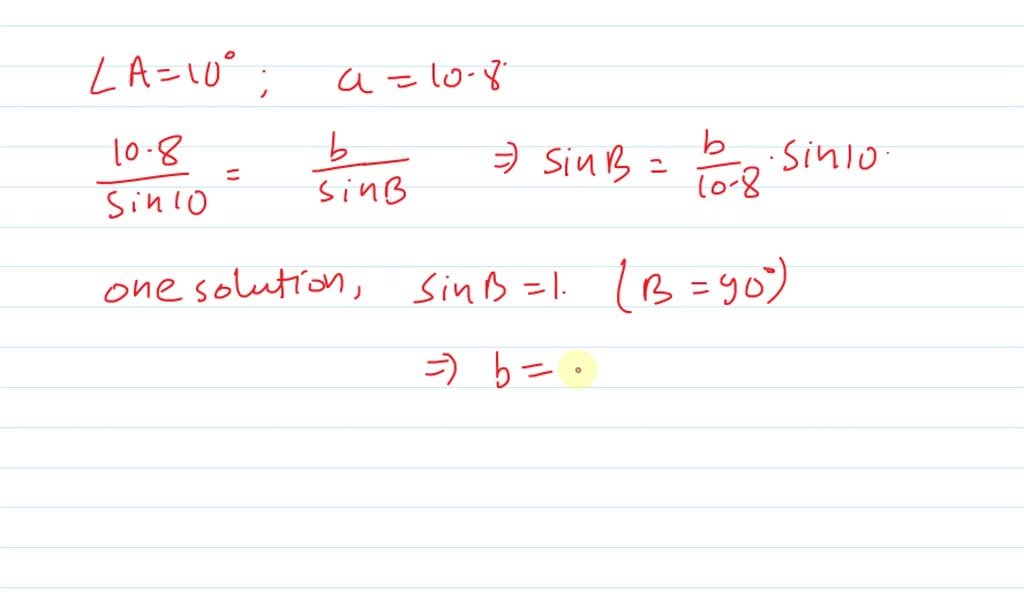 ∠A=10° ; a = 10.8
10.8/sin10 = b/sinB ⇒ sinB = b/10.8 · sin10.
one solution, sinB=1. (B=90°)
⇒ b=